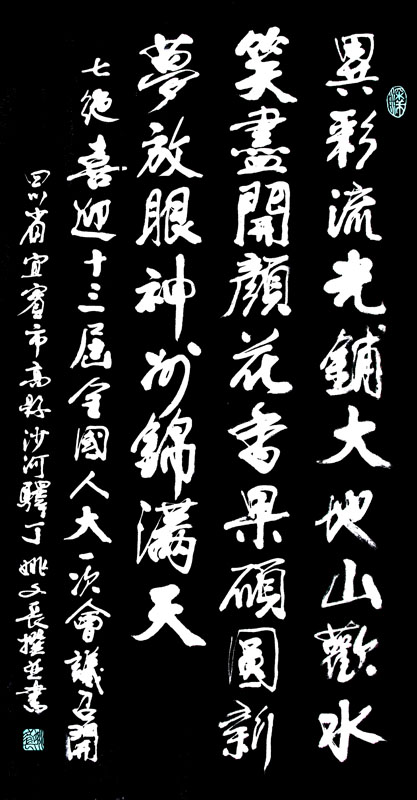 異彩流光鋪大地山歡水
笑盡開顔花香果碩圓新
夢放眼神州錦滿天
七絶喜迎十三届全國人大一次會議召開
四川省宜賓市高縣沙河驛丁姚文長撰並書